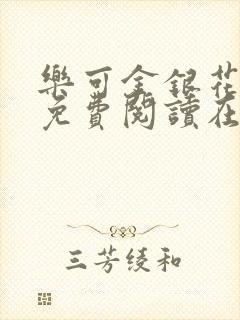 樂可金銀花
免費閱讀在
三芳绫和